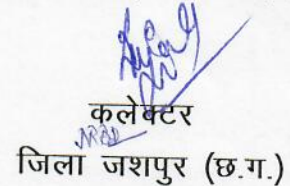 कलेक्टर
जिला जशपुर (छ.ग.)